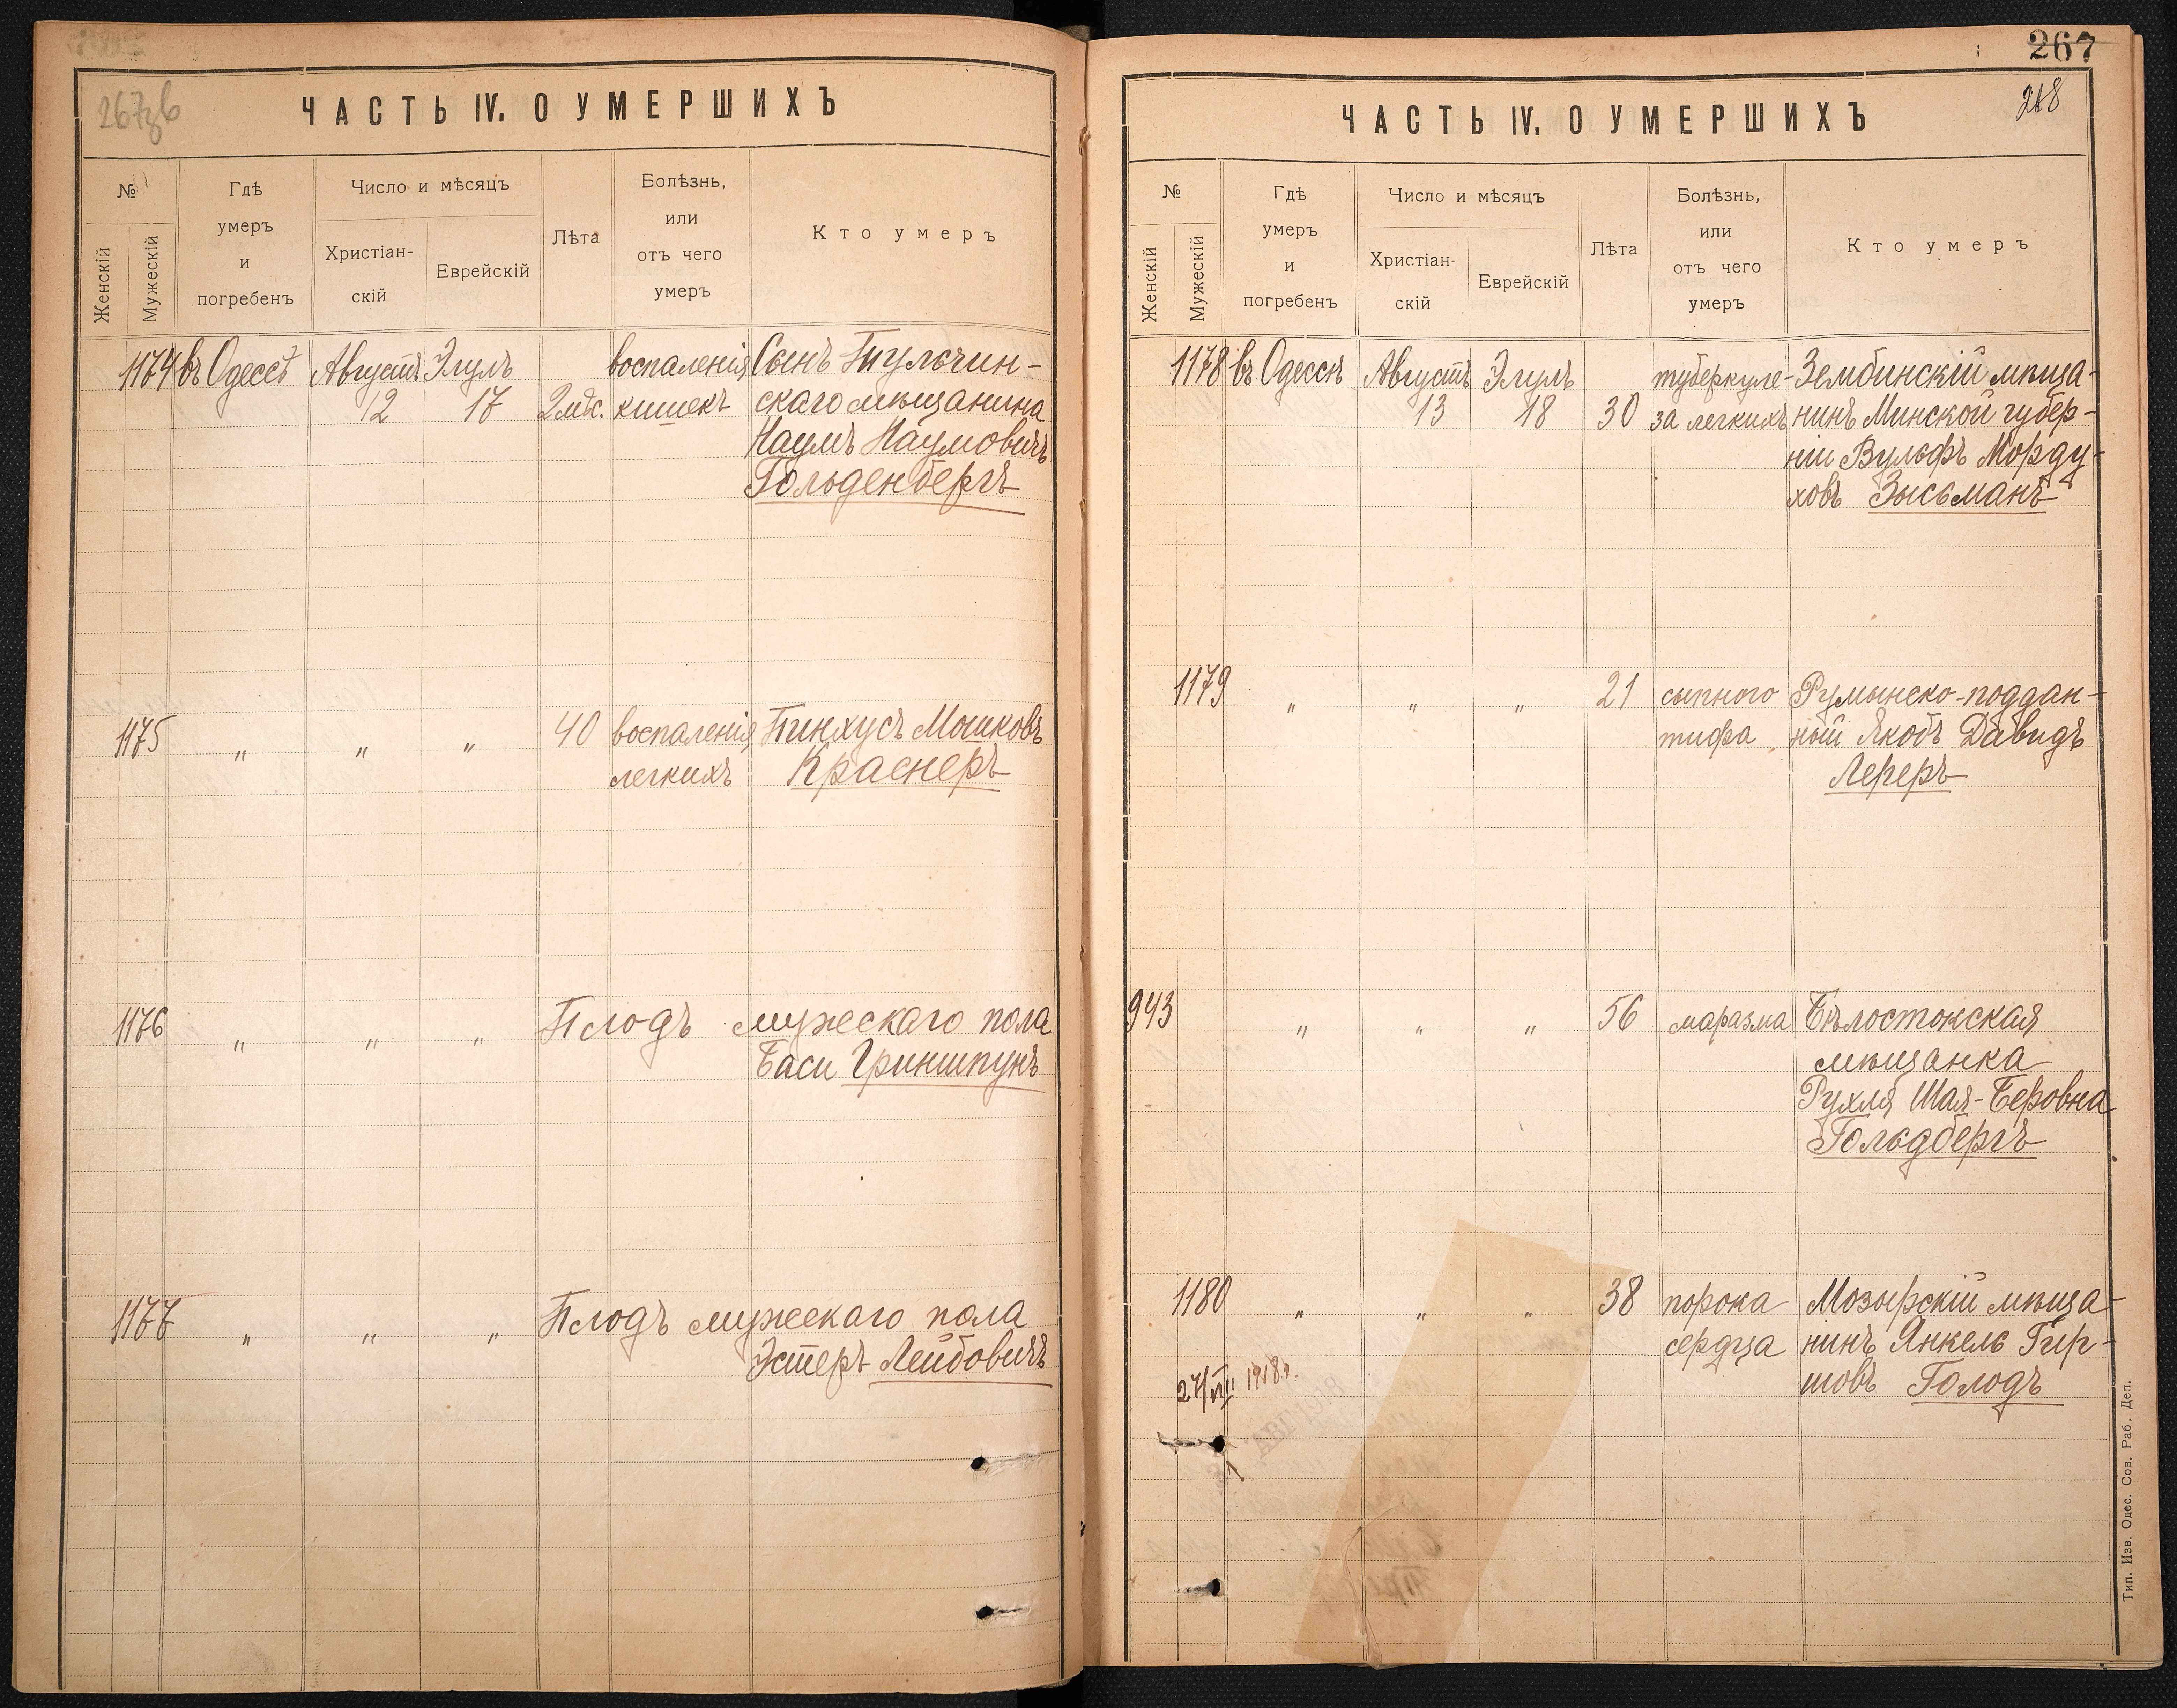 267зв
ЧАСТЬ IV. О УМЕРШИХЪ
№
Женскій
Мужескій
Гдѣ
умеръ
и
погребенъ
Число и мѣсяцъ
Христіан-
скій
Еврейскій
Лѣта
Болѣзнь,
или
отъ чего
умеръ
Кто умеръ
1174 въ Одессѣ Августъ Элулъ воспаленія Сынъ Тульчин-
12 17 2 мѣс. кишекъ скаго мѣщанина
Наумъ Наумовичъ
Гольденбергъ
1175 „ „ „ 40 воспаленія Пинхусъ Мошковъ
легкихъ Краснеръ
1176 „ „ „ Плодъ мужескаго пола
Баси Гриншпунъ
1177 „ „ „ Плодъ мужескаго пола
Эстеръ Лейбовичъ
267
ЧАСТЬ IV. О УМЕРШИХЪ
268
№
Женскій
Мужескій
Гдѣ
умеръ
и
погребенъ
Число и мѣсяцъ
Христіан-
скій
Еврейскій
Лѣта
Болѣзнь,
или
отъ чего
умеръ
Кто умеръ
1178 въ Одессѣ Августъ Элулъ туберкуле- Зембинскій мѣща-
13 18 30 за легкихъ нинъ Минской губер-
ніи Вульфъ Морду-
ховъ Зысьманъ
1179 „ „ „ 21 сыпного Румынско-поддан-
тифа ный Якобъ Давидъ
Лереръ
943 „ „ „ 56 маразма Бѣлостокская
мѣщанка
Рухля Шая-Беровна
Гольдбергъ
1180 „ „ „ 38 порока Мозырскій мѣща-
сердца нинъ Янкель Гир-
шовъ Голодъ
27/VIII 1918 г.
Тип. Изв. Одес. Сов. Раб. Деп.